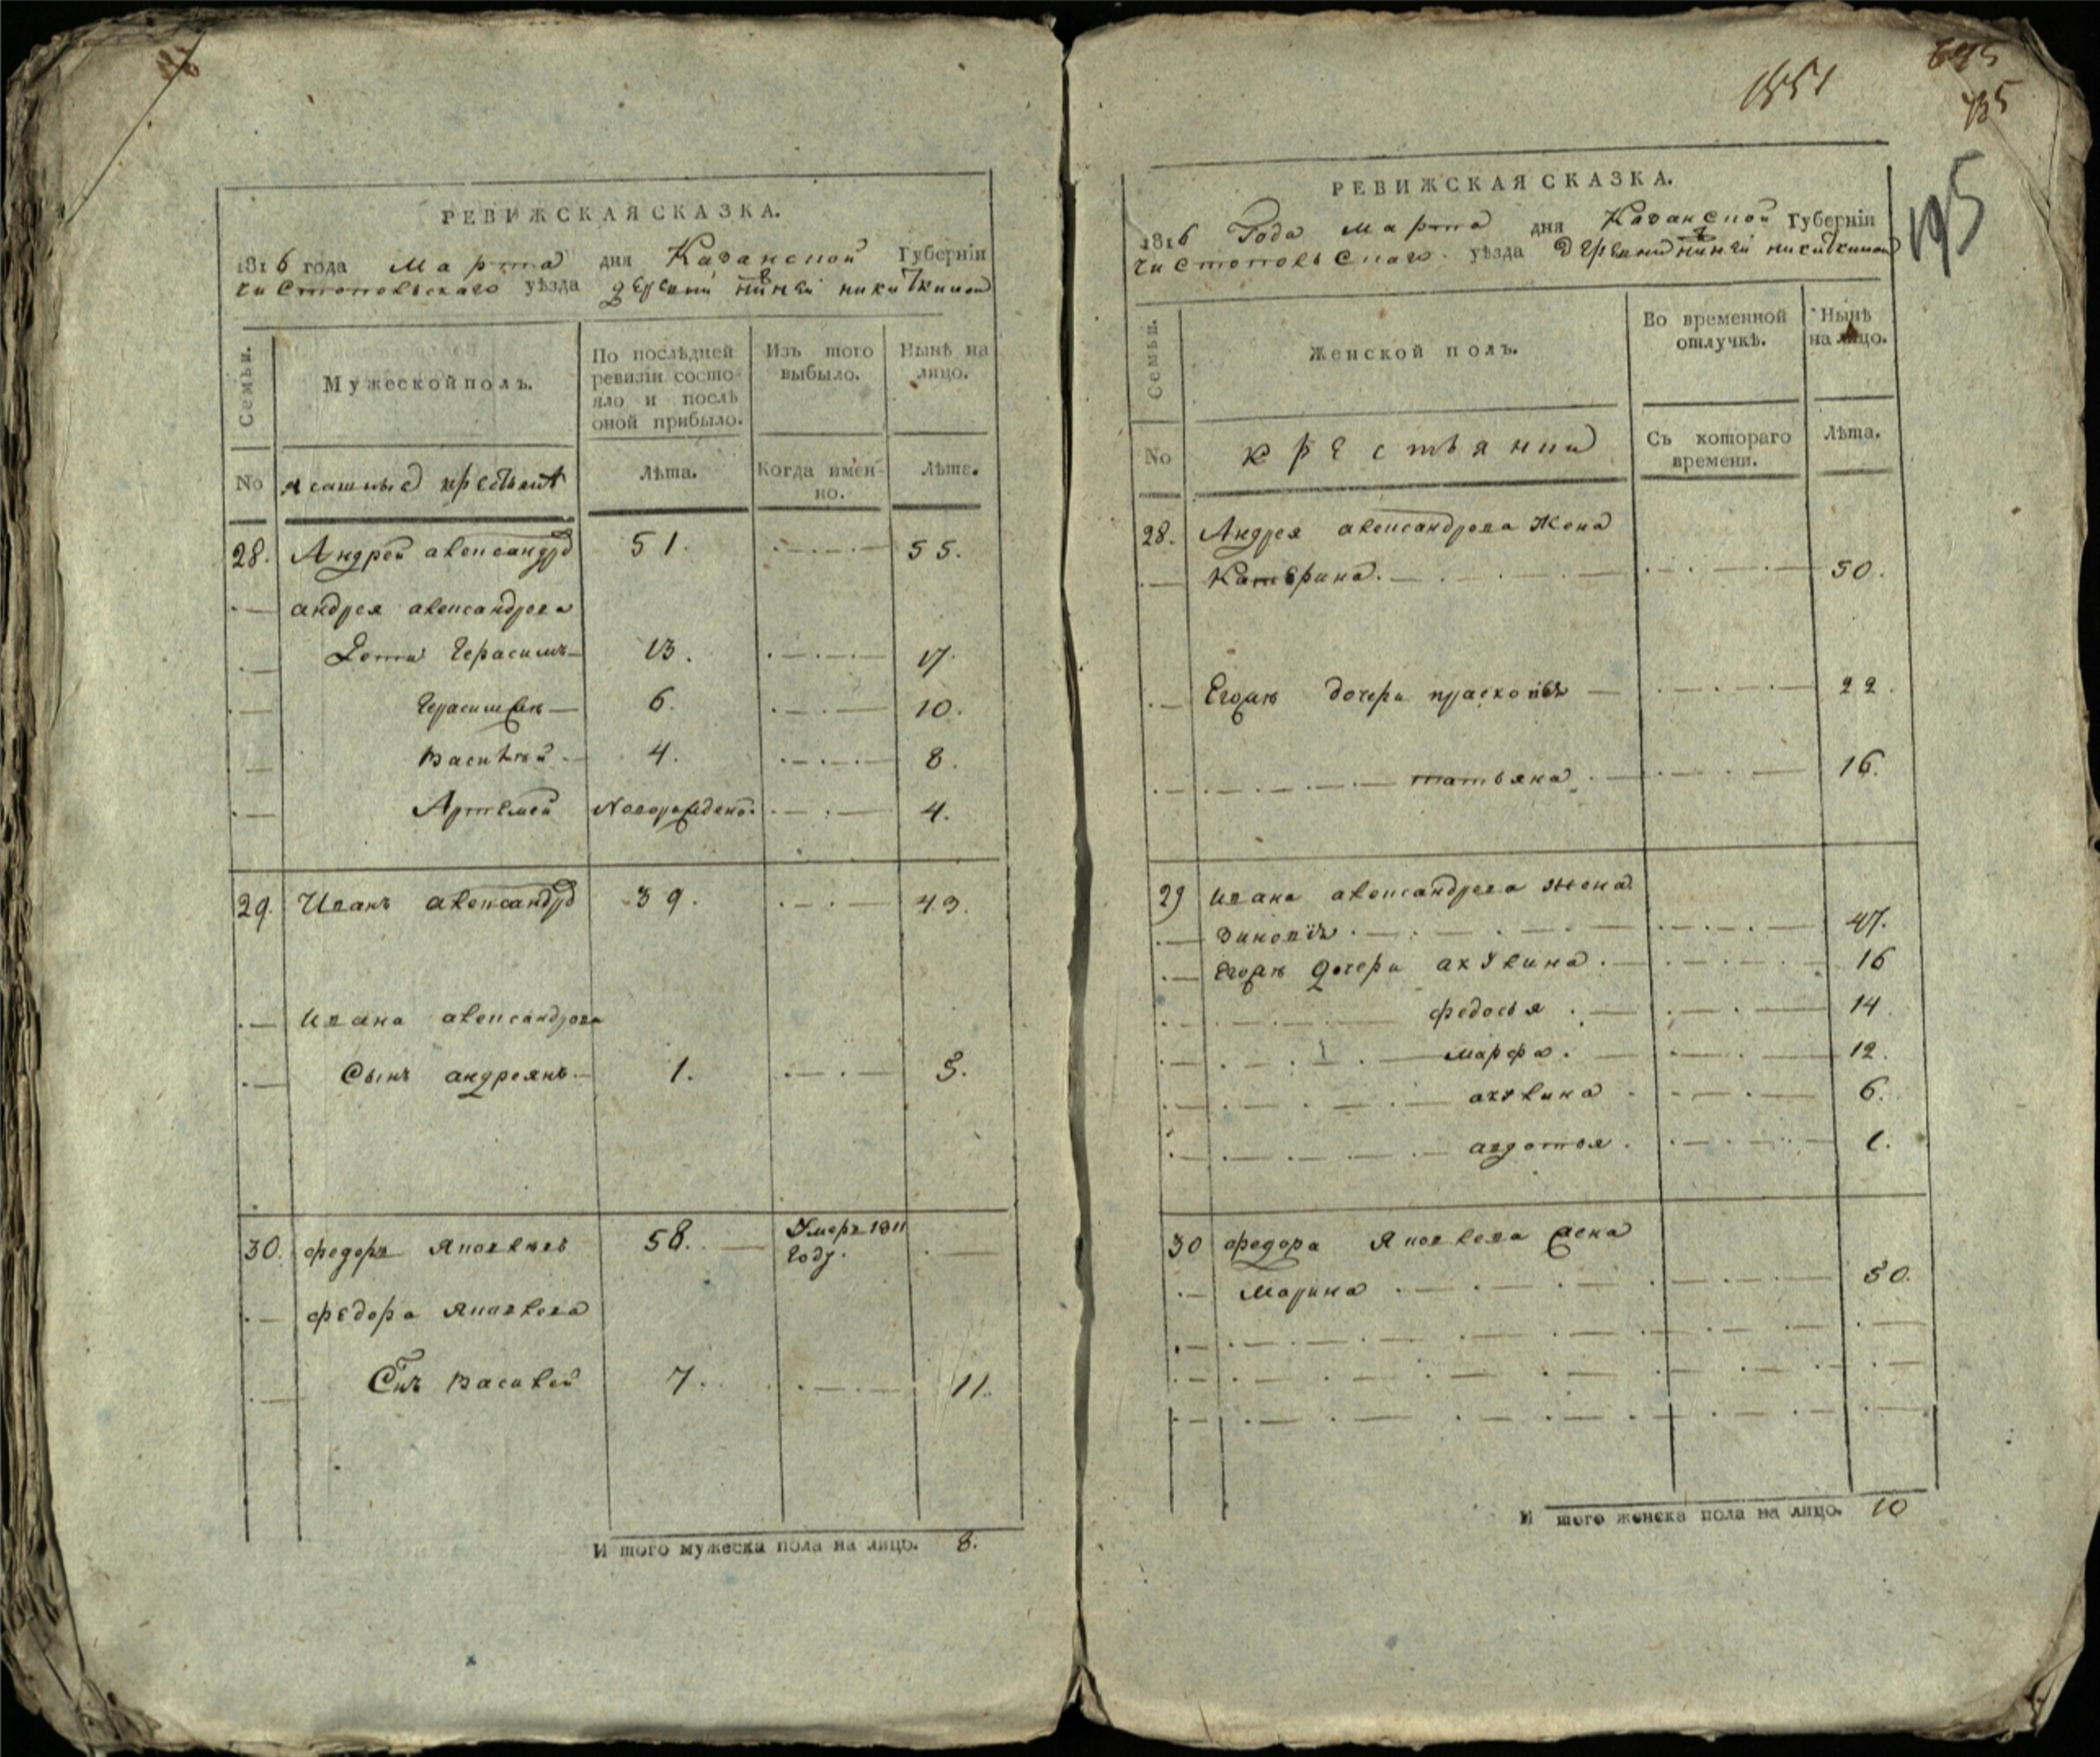 РЕВИЖСКАЯ СКАЗКА.
1816 года Марта дня Казанской Губерніи
чистопольскаго уѣзда деревни никиткиной
Семьи.
Мужеской полъ.
По послѣдней ревизіи состояло и послѣ оной прибыло.
Изъ того выбыло.
Нынѣ на лицо.
No ясашные крестьяне
Лѣта.
Когда именно.
Лѣта.
28. Андрей александров 51. 55.
андрея александрова
Дети Герасимъ 13. 17.
Герасим же 6. 10.
Василей 4. 8.
Артемей Новорожденъ. 4.
29. Иванъ александров 39. 43.
ивана александрова
Сынъ андреянъ 1. 5.
30. федоръ Яковлевъ 58. Умеръ 1811 году.
федора яковлева
Снъ василей 7. 11.
И того мужеска пола на лицо. 8.
1351
695
195
РЕВИЖСКАЯ СКАЗКА.
1816 Года марта дня Казанской Губерніи
чистопольскаго уѣзда деревни никиткиной
Семьи.
Женской полъ.
Во временной отлучкѣ.
Нынѣ на лицо.
No крестьянии
Съ котораго времени.
Лѣта.
28. Андрея александрова жена
Катерина. 50.
Егожъ дочери прасковья 22.
татьяна 16.
29 ивана александрова жена
зиновія 47.
егожъ дочери акулина 16
федосья 14
марфа 12.
акулина 6.
авдотья 1.
30 федора Яковлева жена
марина 50.
И того женска пола на лицо. 10